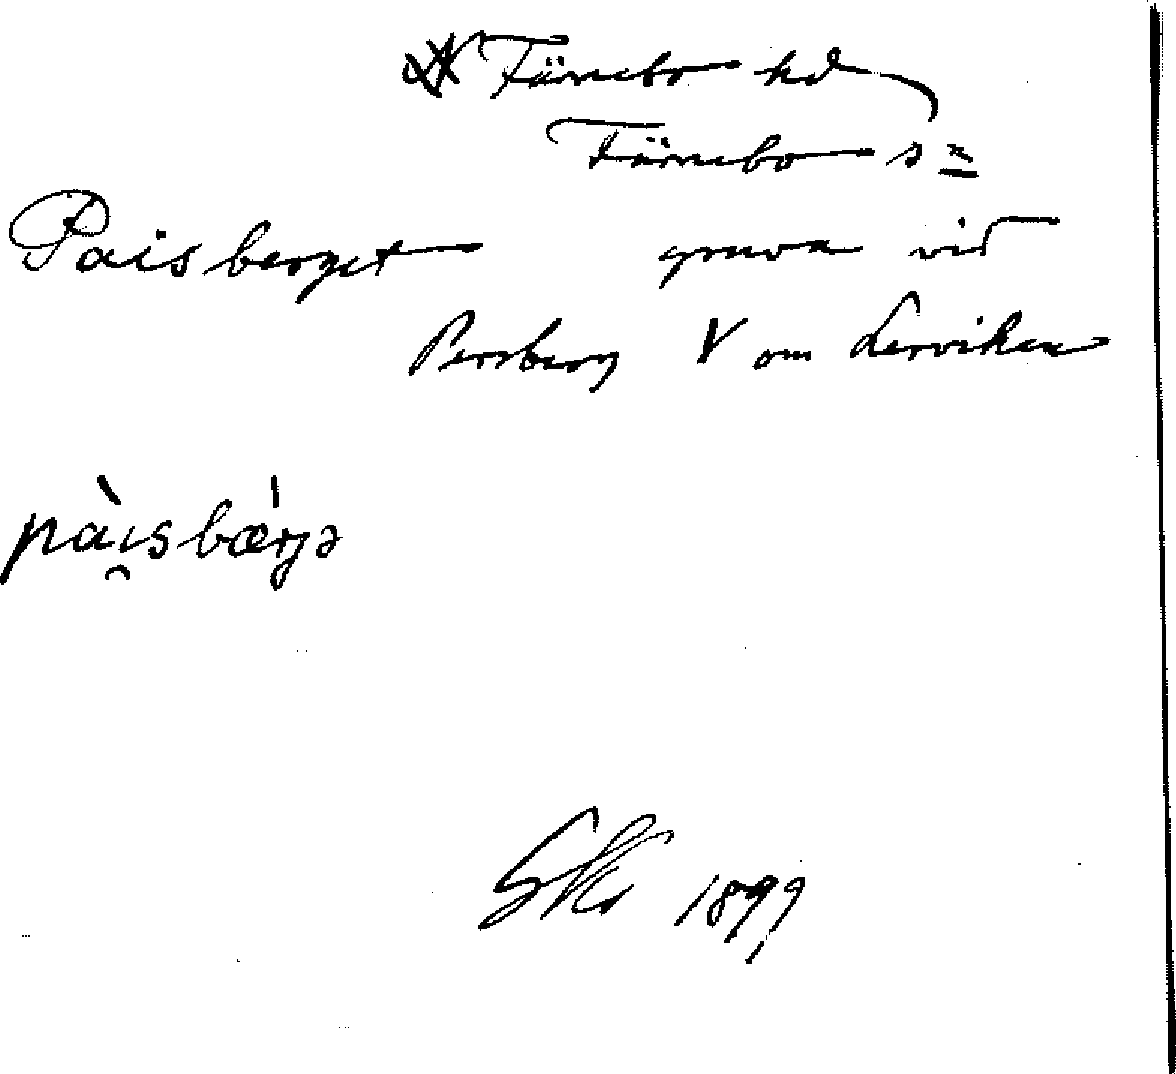 Färnebo hd
Färnebo sn
Paisberget gruva vid
Persberg V om Lerviken
pài̯sbæ̀rjə
1899